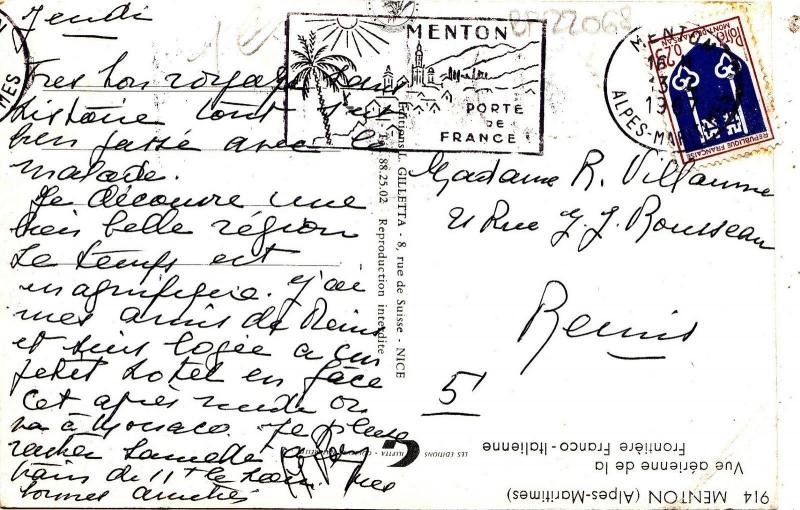 Jeudi
Tres bon voyage sans
histoire tout s'est
bien passé avec la
malade.
Je découvre une
bien belle région
Le temps est
magnifique. J'ai
mes amis de Reims
et suis logée a un
petit hotel en face
Cet après midi on
va à Monaco. Je pense
rentrer samedi
train de 11h le soir. mes
bonnes amitiés
MENTON
PORTE
DE
FRANCE
BP22068
MENTON
16
3
1967
ALPES-MARITIMES
0,25
MONT-DE-MARSAN
REPUBLIQUE FRANÇAISE
Madame R. Villaume
21 Rue J. J. Rousseau
Reims
5
Editions L. GILLETTA - 8, rue de Suisse - NICE
88.25.02 Reproduction interdite
LES EDITIONS
GILETTA
914 MENTON (Alpes-Maritimes)
Vue aérienne de la
Frontière Franco-Italienne